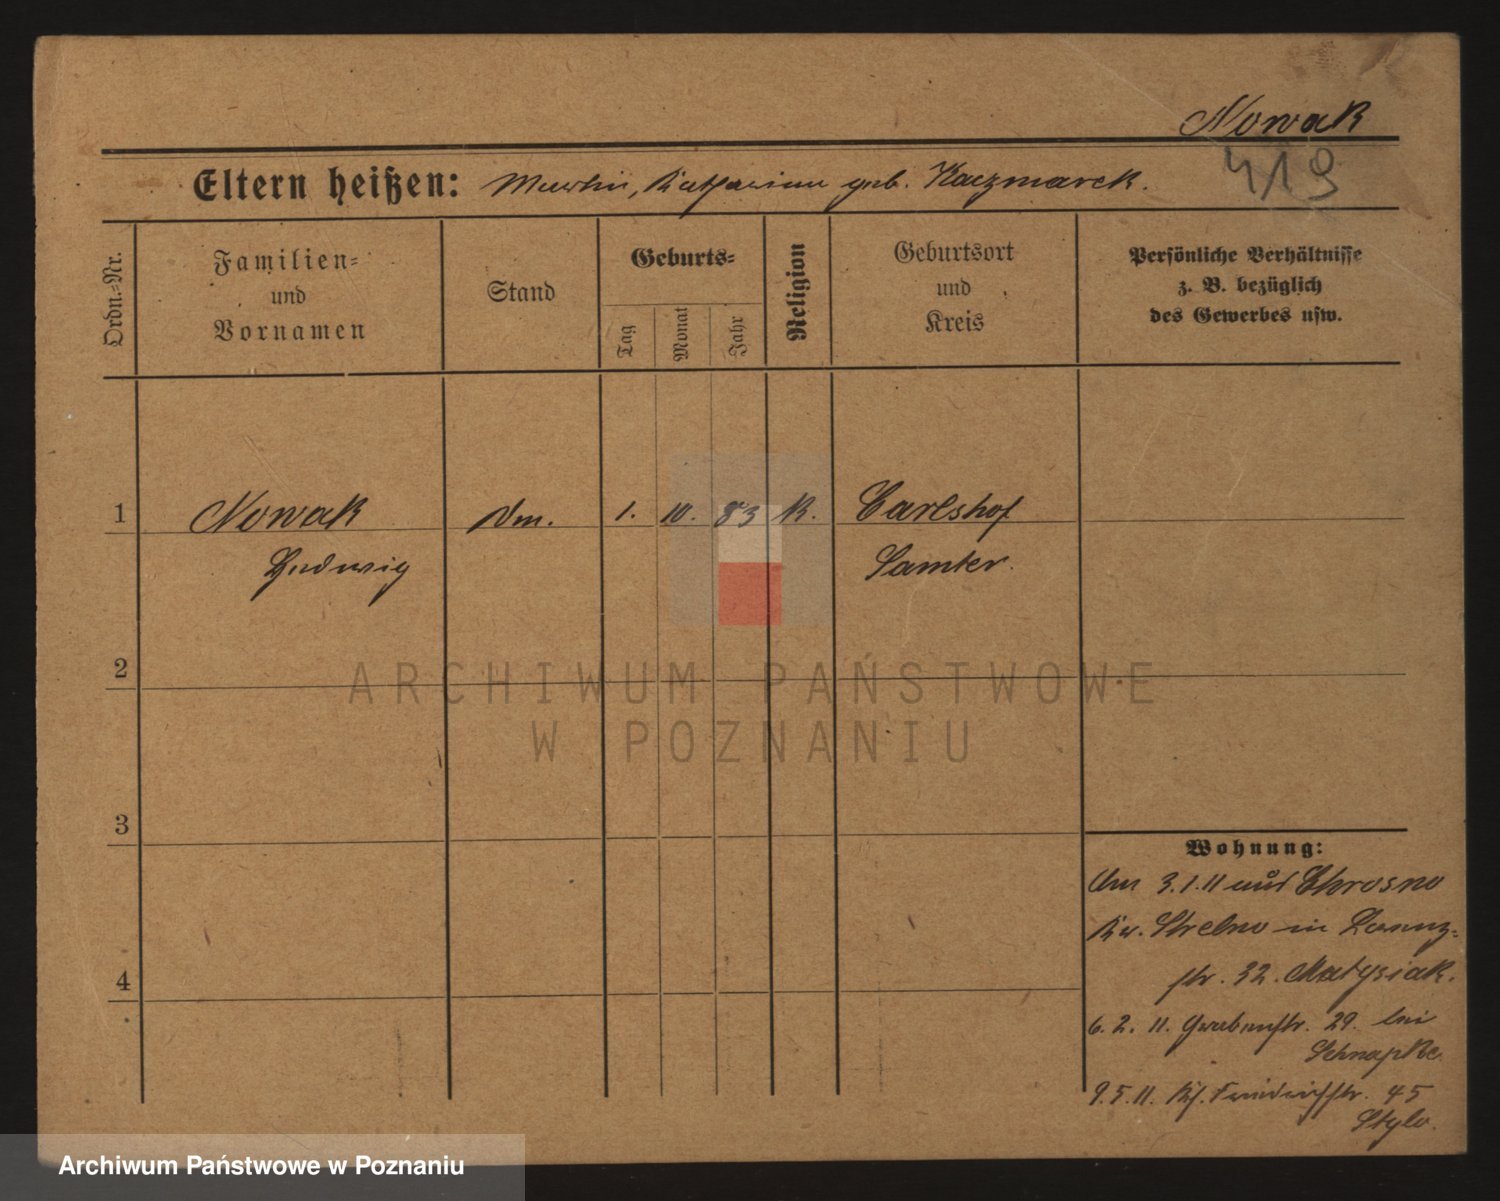 Nowak
Eltern heißen: Martin, Katharina geb. Kaczmarek.
419
Ordn.-Nr.
Familien-
und
Vornamen
Stand
Geburts-
Tag
Monat
Jahr
Religion
Geburtsort
und
Kreis
Persönliche Verhältnisse
z. B. bezüglich
des Gewerbes usw.
1 Nowak 1. 10. 83 K. Carlshof
Ludwig Samter.
2
3
4
Wohnung:
3.1.11 aus Chrosno
Kr. Strelno in
str. 32. Matysiak.
6. 2. 11. Grabenstr. 29. bei
Schnapke.
9. 5. 11. Friedrichstr. 45
ARCHIWUM PAŃSTWOWE
W POZNANIU
Archiwum Państwowe w Poznaniu